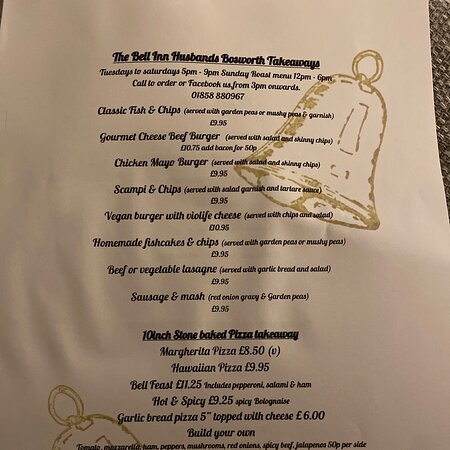 The Bell Inn Husbands Bosworth Takeaways
Tuesdays to saturdays 5pm - 9pm Sunday Roast menu 12pm - 6pm
Call to order or Facebook us from 3pm onwards.
01858 880967
Classic Fish & Chips (served with garden peas or mushy peas & garnish)
£9.95
Gourmet Cheese Beef Burger (served with salad and skinny chips)
£10.75 add bacon for 50p
Chicken Mayo Burger (served with salad and skinny chips)
£9.95
Scampi & Chips (served with salad garnish and tartare sauce)
£9.95
Vegan burger with violife cheese (served with chips and salad)
£10.95
Homemade fishcakes & chips (served with garden peas or mushy peas)
£9.95
Beef or vegetable lasagne (served with garlic bread and salad)
£9.95
Sausage & mash (red onion gravy & Garden peas)
£9.95
10inch Stone baked Pizza takeaway
Margherita Pizza £8.50 (v)
Hawaiian Pizza £9.95
Bell Feast £11.25 Includes pepperoni, salami & ham
Hot & Spicy £9.25 spicy Bolognaise
Garlic bread pizza 5” topped with cheese £6.00
Build your own
Tomato, mozzarella, ham, peppers, mushrooms, red onions, spicy beef, jalapenos 50p per side